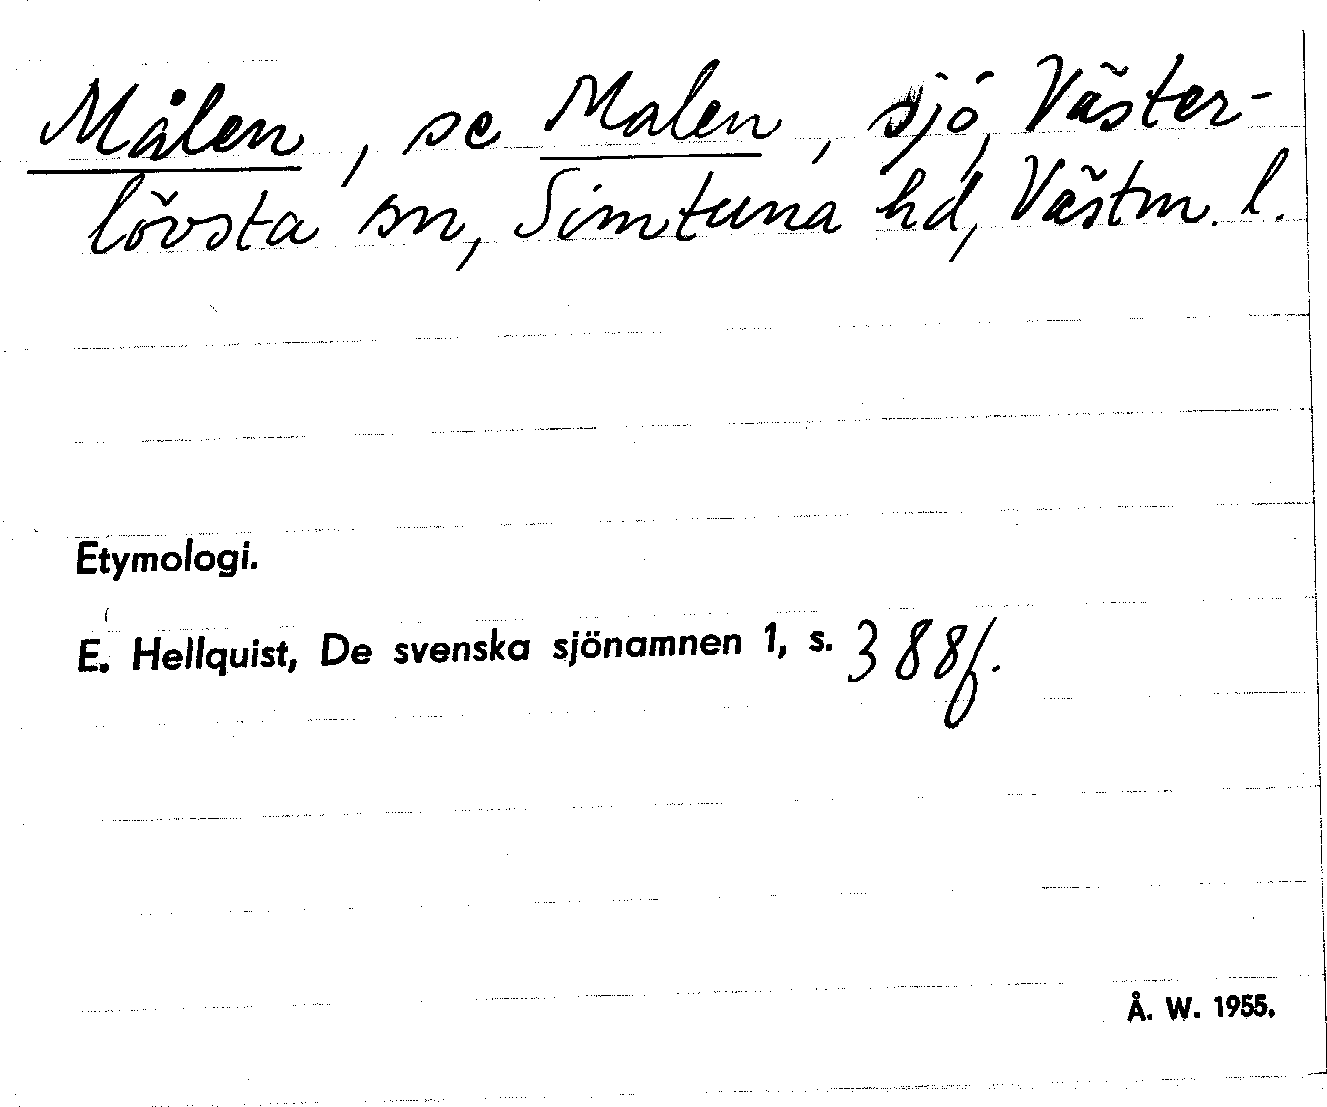 Målen, se Malen, sjö, Väster-
lövsta sn, Simtuna hd, Västm. l.
Etymologi.
E. Hellquist, De svenska sjönamnen 1, s. 388f.
Å. W. 1955.